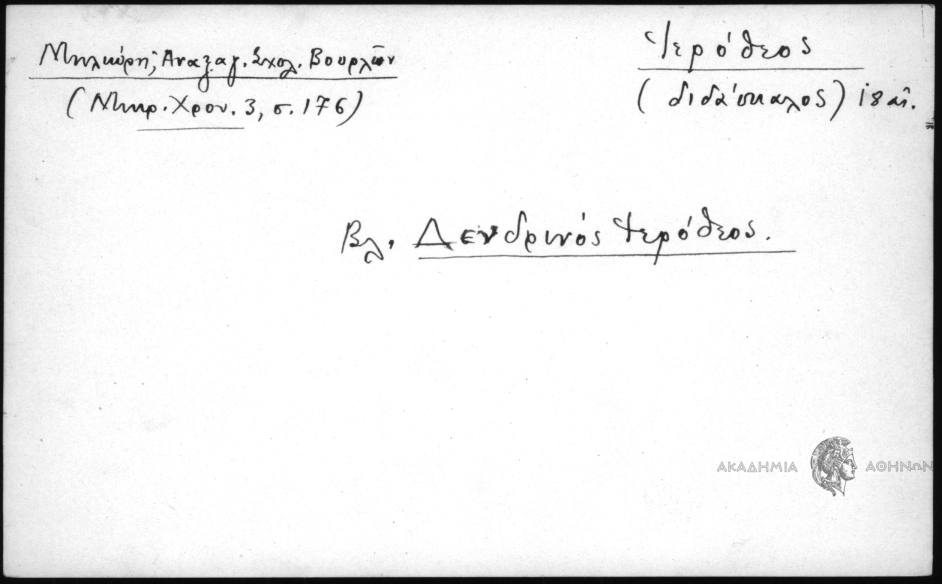 Μηλιώρη, Αναξαγ. Σχολ. Βουρλῶν
(Μικρ. Χρον. 3, σ. 176)
Ἱερόθεος
(διδάσκαλος) 18 αἰ.
Βλ. Δενδρινός Ἱερόθεος.
ΑΚΑΔΗΜΙΑ ΑΘΗΝΩΝ